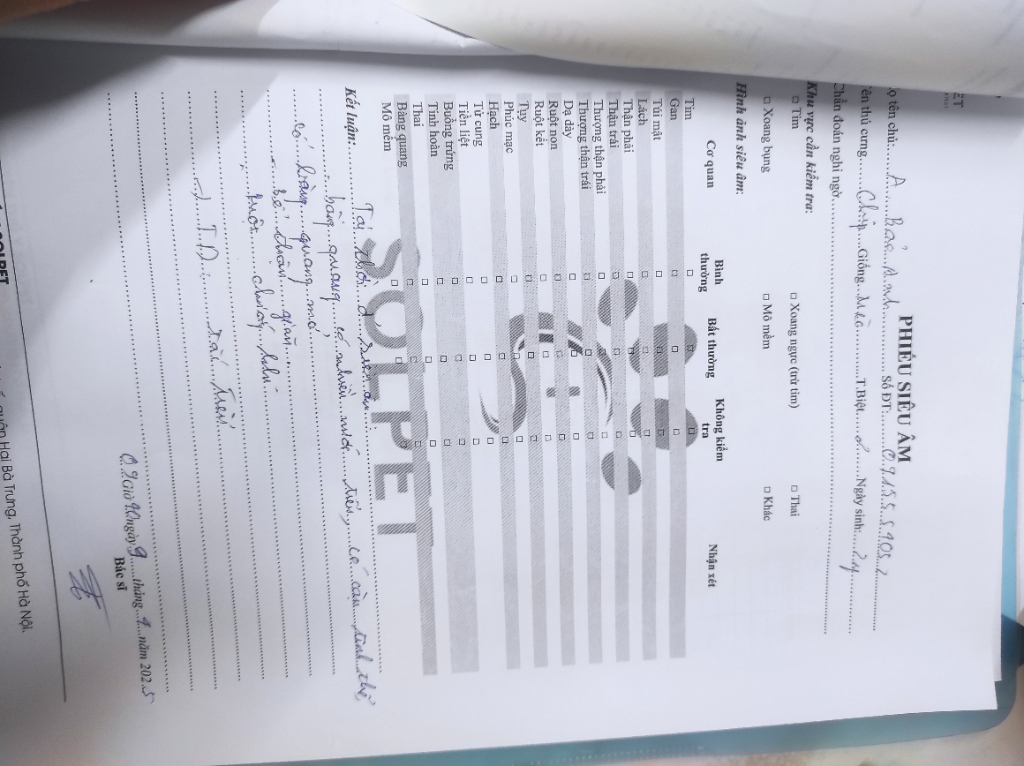 PHIẾU SIÊU ÂM
ọ tên chủ:.....A.....Bảo...Anh..........Số ĐT:...0.9.1.5.5.5.9.05.2
ên thú cưng.....Chíp....Giống..Mèo.......T.Biệt...♂....Ngày sinh:...2y
Chẩn đoán nghi ngờ
Khu vực cần kiểm tra:
□ Tim □ Xoang ngực (trừ tim) □ Thai
□ Xoang bụng □ Mô mềm □ Khác
Hình ảnh siêu âm:
Cơ quan Bình thường Bất thường Không kiểm tra Nhận xét
Tim □ □ □
Gan □ □ □
Túi mật □ □ □
Lách □ □ □
Thận phải □ □ □
Thận trái □ □ □
Thượng thận phải □ □ □
Thượng thận trái □ □ □
Dạ dày □ □ □
Ruột non □ □ □
Ruột kết □ □ □
Tụy □ □ □
Phúc mạc □ □ □
Hạch □ □ □
Tử cung □ □ □
Tiền liệt □ □ □
Buồng trứng □ □ □
Tinh hoàn □ □ □
Thai □ □ □
Bàng quang □ □ □
Mô mềm □ □ □
SOLPET
Kết luận: Tại thời đ siêu âm:
bàng quang có nhiều nước tiểu, có cặn tinh thể
có bàng quang
bể thận giãn
ruột chướng hơi
TD: tắc tiểu
09 Giờ ngày 9 tháng 9 năm 2025
Bác sĩ
quận Hai Bà Trưng, Thành phố Hà Nội.